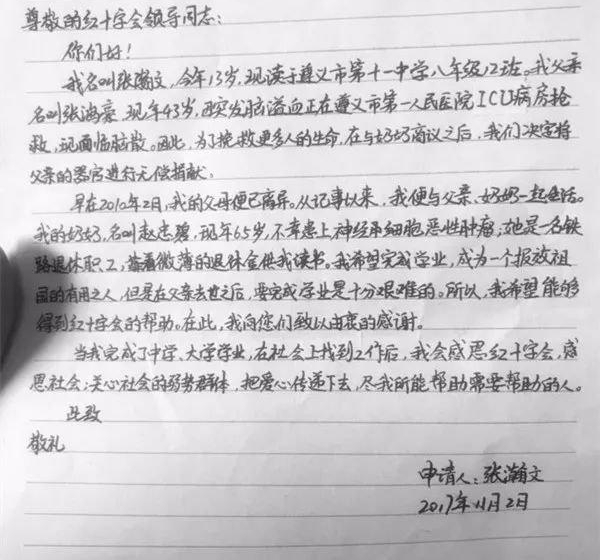 尊敬的红十字会领导同志：
你们好！
我名叫张瀚文，今年13岁，现读于遵义市第十一中学八年级12班。我父亲
名叫张鸿豪，现年43岁，因突发脑溢血正在遵义市第一人民医院ICU病房抢
救，现面临脑散。因此，为了挽救更多人的生命，在与奶奶商议之后，我们决定将
父亲的器官进行无偿捐献。
早在2010年2月，我的父母便已离异。从记事以来，我便与父亲、奶奶一起生活。
我的奶奶，名叫赵忠碧，现年65岁，不幸患上神经母细胞恶性肿瘤；她是一名铁
路退休职工，靠着微薄的退休金供我读书。我希望完成学业，成为一个报效祖
国的有用之人，但是在父亲去世之后，要完成学业是十分艰难的。所以，我希望能够
得到红十字会的帮助。在此，我向您们致以由衷的感谢。
当我完成了中学、大学学业，在社会上找到工作后，我会感恩红十字会，感
恩社会；关心社会的弱势群体，把爱心传递下去，尽我所能帮助需要帮助的人。
此致
敬礼
申请人：张瀚文
2017年11月2日